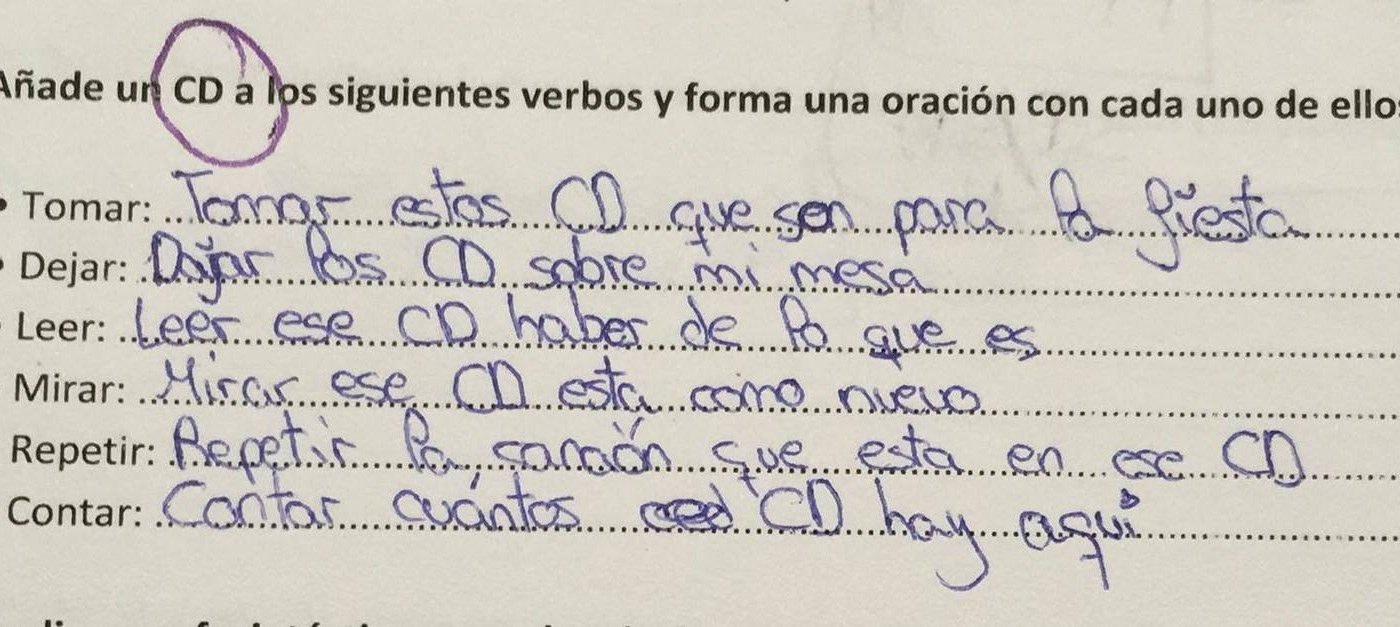 Añade un CD a los siguientes verbos y forma una oración con cada uno de ellos
Tomar: Tomar estos CD que son para la fiesta
Dejar: Dejar los CD sobre mi mesa
Leer: Leer ese CD haber de lo que es
Mirar: Mirar ese CD esta como nuevo
Repetir: Repetir la canción que esta en ese CD
Contar: Contar cuántos CD hay aquí